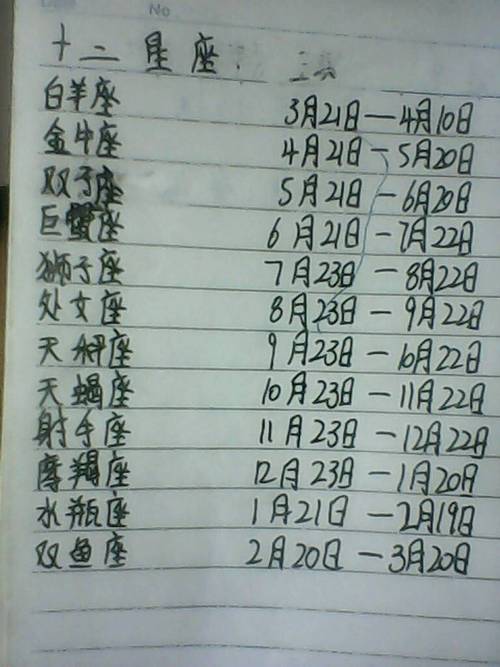 No
十二星座.
白羊座 3月21日—4月10日
金牛座 4月21日—5月20日
双子座 5月21日—6月20日
巨蟹座 6月21日—7月22日
狮子座 7月23日—8月22日
处女座 8月23日—9月22日
天秤座 9月23日—10月22日
天蝎座 10月23日—11月22日
射手座 11月23日—12月22日
摩羯座 12月23日—1月20日
水瓶座 1月21日—2月19日
双鱼座 2月20日—3月20日